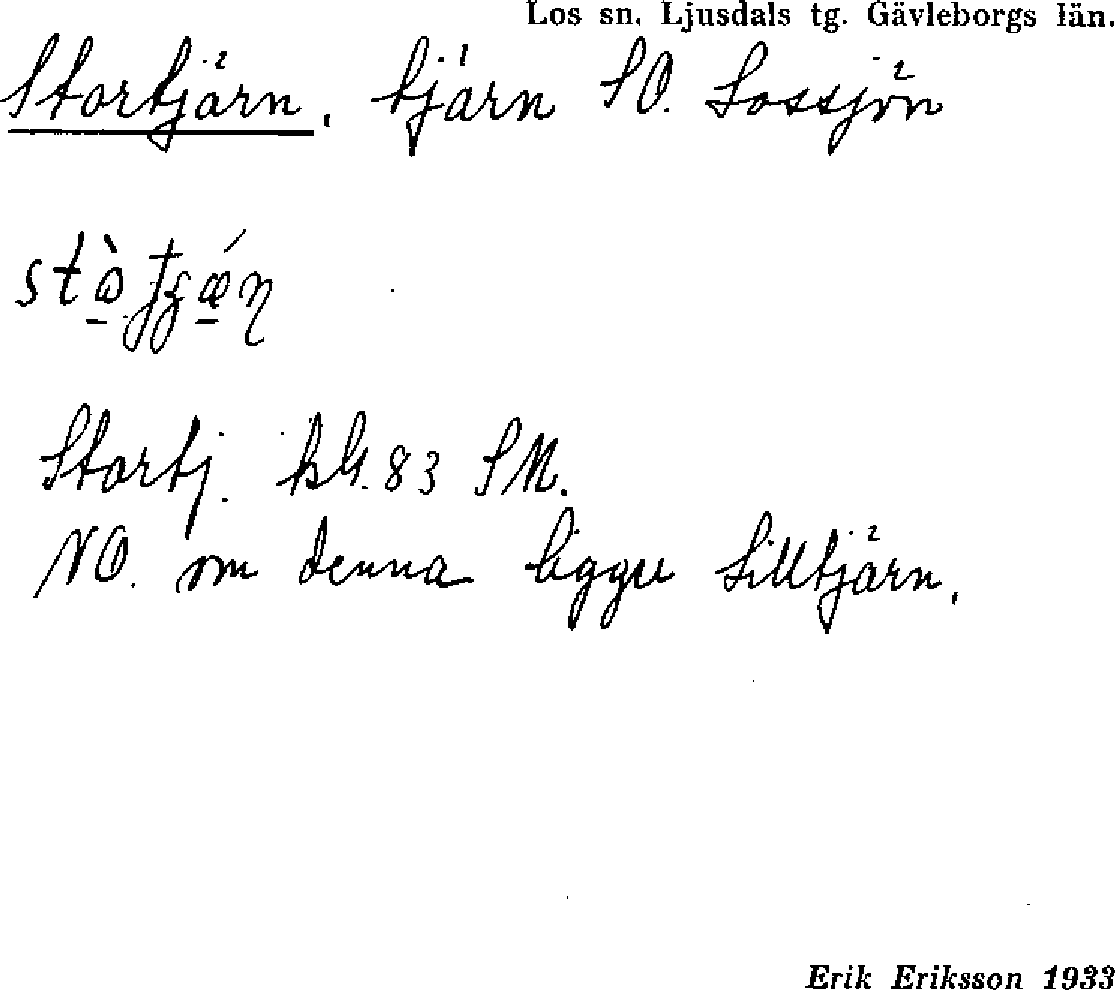 Los sn. Ljusdals tg. Gävleborgs län.
Stortjärn. tjärn SO. Lossjön
Stortj. bl. 83 SM.
NO. om denna ligger Lilltjärn.
Erik Eriksson 1933